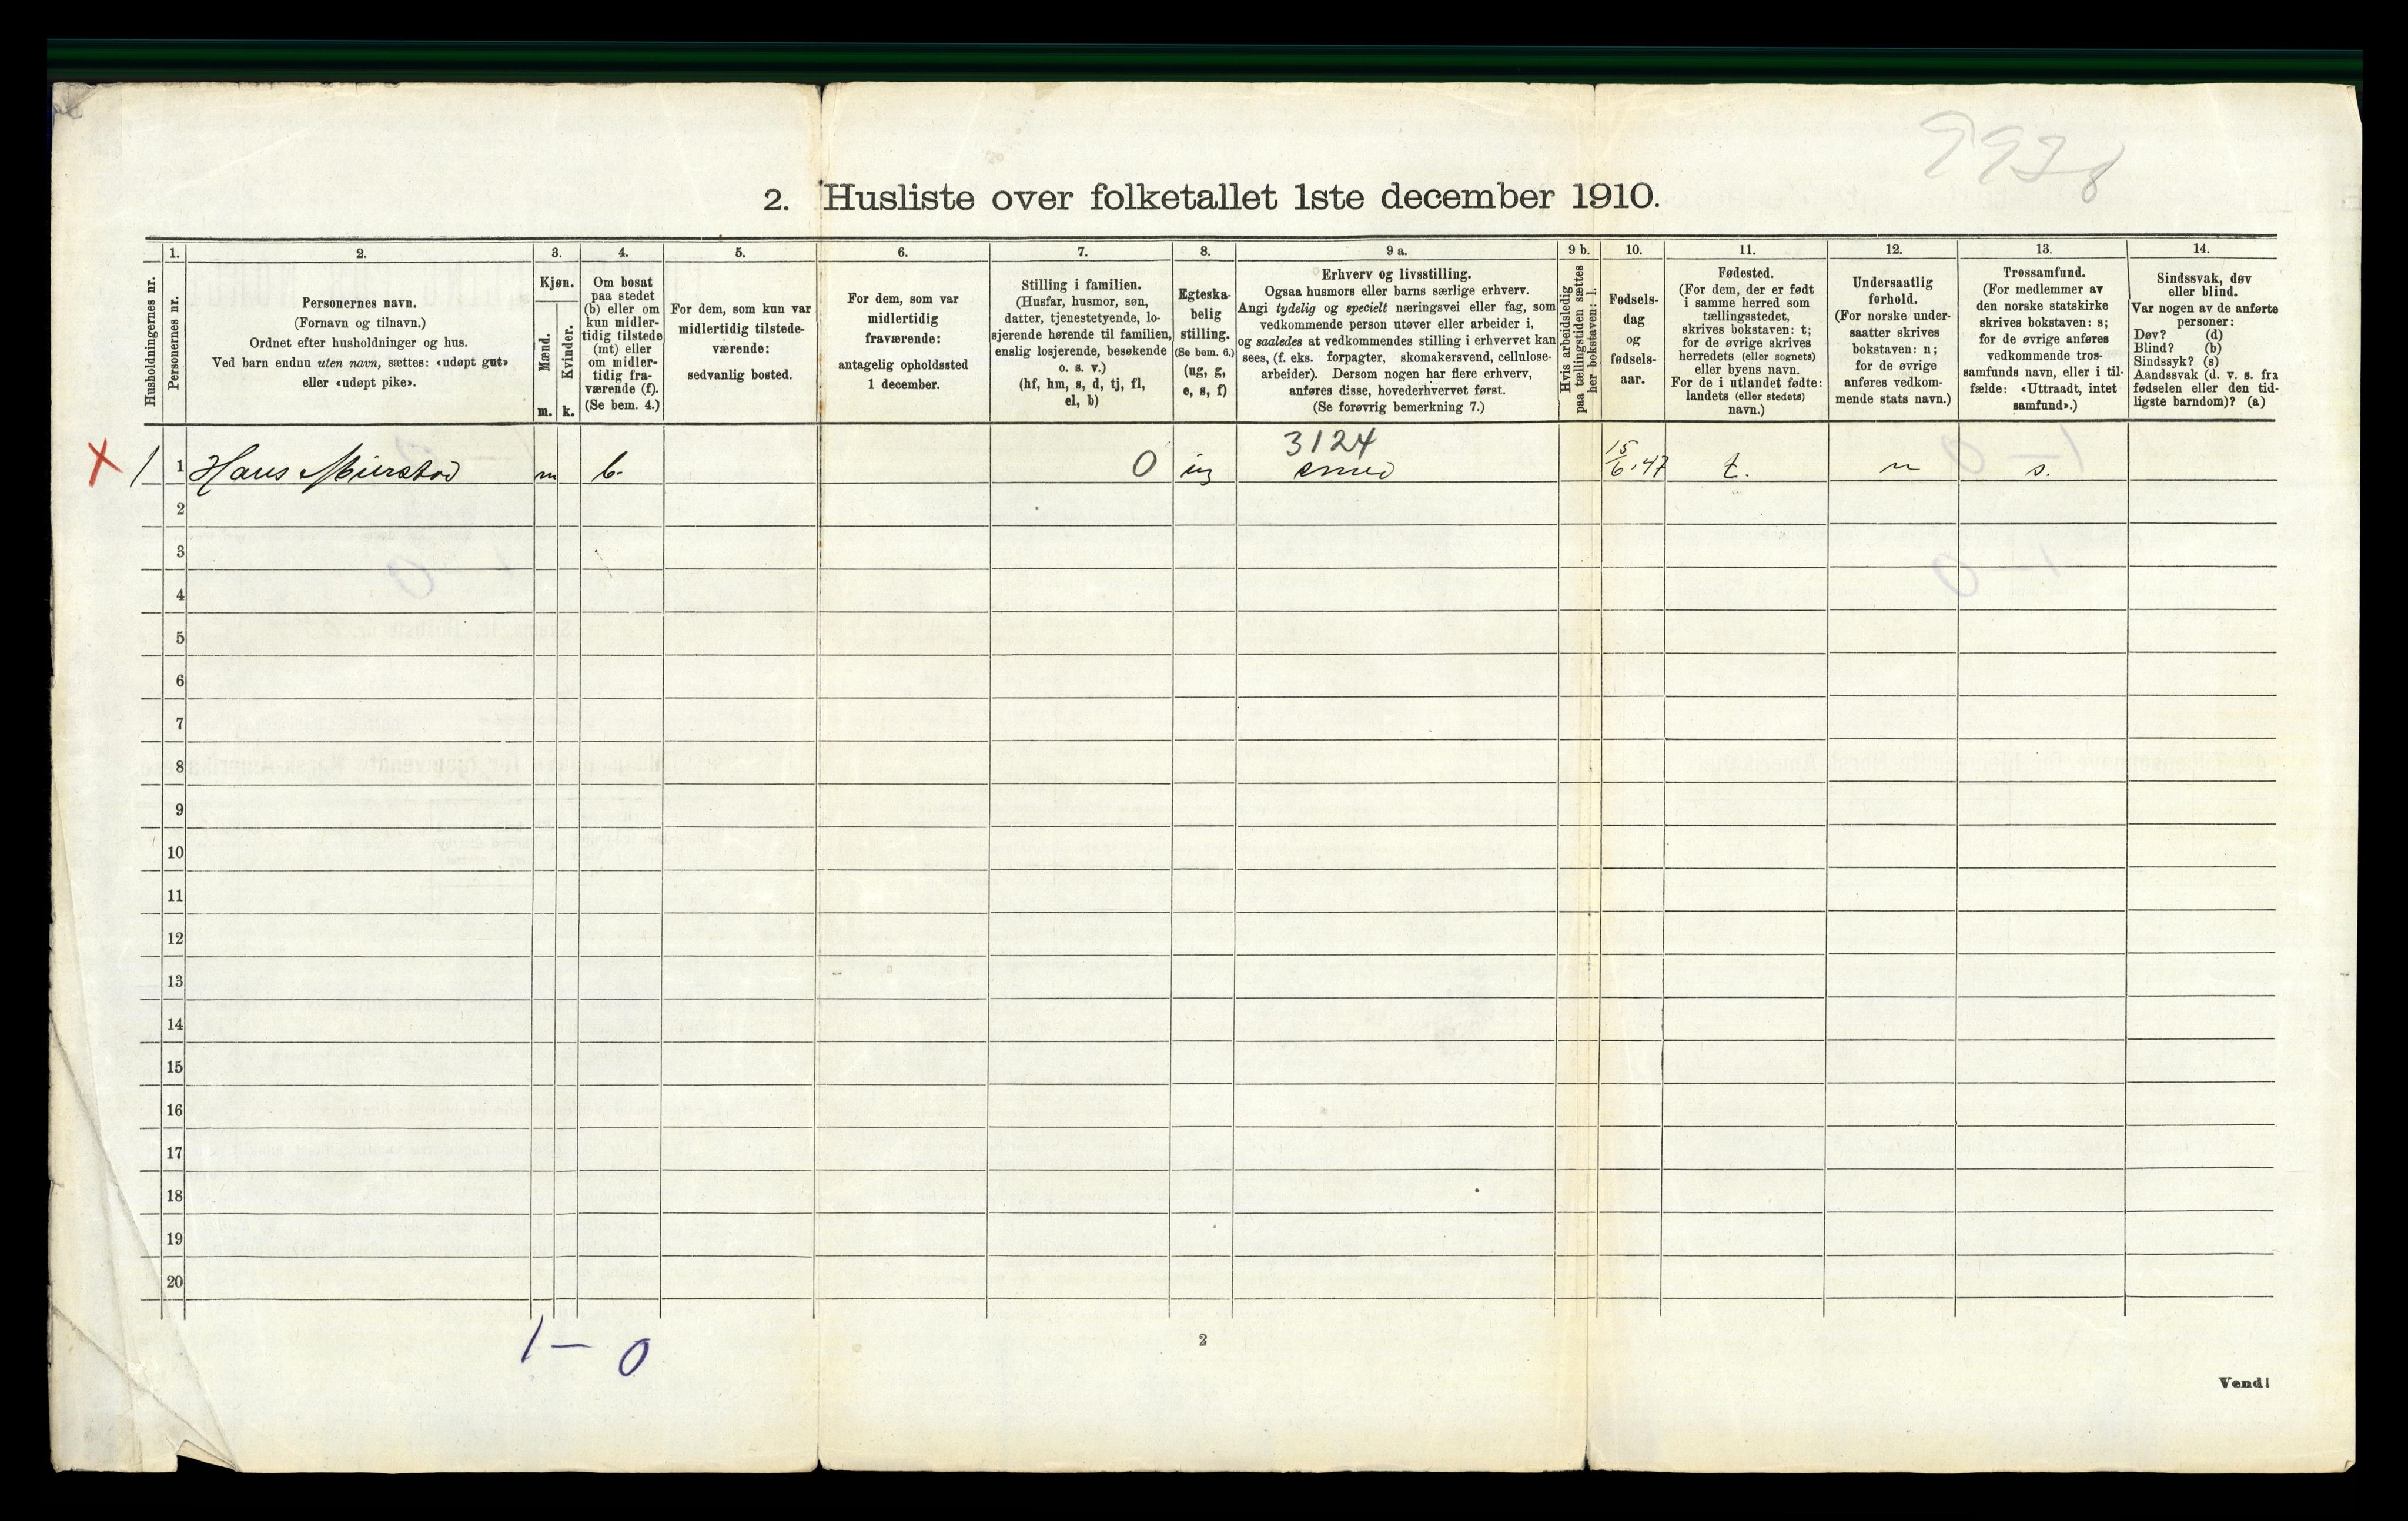 9938
2. Husliste over folketallet 1ste december 1910.
Husholdningernes nr.
1.
Personernes nr.
2.
Personernes navn.
(Fornavn og tilnavn.)
Ordnet efter husholdninger og hus.
Ved barn endnu uten navn, sættes: «udøpt gut»
eller «udøpt pike».
3.
Kjøn.
Mænd.
m.
Kvinder.
k.
4.
Om bosat
paa stedet
(b) eller om
kun midler-
tidig tilstede
(mt) eller
om midler-
tidig fra-
værende (f).
(Se bem. 4.)
5.
For dem, som kun var
midlertidig tilstede-
værende:
sedvanlig bosted.
6.
For dem, som var
midlertidig
fraværende:
antagelig opholdssted
1 december.
7.
Stilling i familien.
(Husfar, husmor, søn,
datter, tjenestetyende, lo-
sjerende hørende til familien,
enslig losjerende, besøkende
o. s. v.)
(hf, hm, s, d, tj, fl,
el, b)
8.
Egteska-
belig
stilling.
(Se bem. 6.)
(ug, g,
e, s, f)
9 a.
Erhverv og livsstilling.
Ogsaa husmors eller barns særlige erhverv.
Angi tydelig og specielt næringsvei eller fag, som
vedkommende person utøver eller arbeider i,
og saaledes at vedkommendes stilling i erhvervet kan
sees, (f. eks. forpagter, skomakersvend, cellulose-
arbeider). Dersom nogen har flere erhverv,
anføres disse, hovederhvervet først.
(Se forøvrig bemerkning 7.)
9 b.
Hvis arbeidsledig
paa tællingstiden sættes
her bokstaven: l.
10.
Fødsels-
dag
og
fødsels-
aar.
11.
Fødested.
(For dem, der er født
i samme herred som
tællingsstedet,
skrives bokstaven: t;
for de øvrige skrives
herredets (eller sognets)
eller byens navn.
For de i utlandet fødte:
landets (eller stedets)
navn.)
12.
Undersaatlig
forhold.
(For norske under-
saatter skrives
bokstaven: n;
for de øvrige
anføres vedkom-
mende stats navn.)
13.
Trossamfund.
(For medlemmer av
den norske statskirke
skrives bokstaven: s;
for de øvrige anføres
vedkommende tros-
samfunds navn, eller i til-
fælde: «Uttraadt, intet
samfund».)
14.
Sindssvak, døv
eller blind.
Var nogen av de anførte
personer:
Døv? (d)
Blind? (b)
Sindssyk? (s)
Aandssvak (d. v. s. fra
fødselen eller den tid-
ligste barndom)? (a)
X 1 1 Hans m b. 0 ug 3124 smed 15/6.47 t. n s.
2
3
4
5
6
7
8
9
10
11
12
13
14
15
16
17
18
19
20
1 — 0
2
Vend!